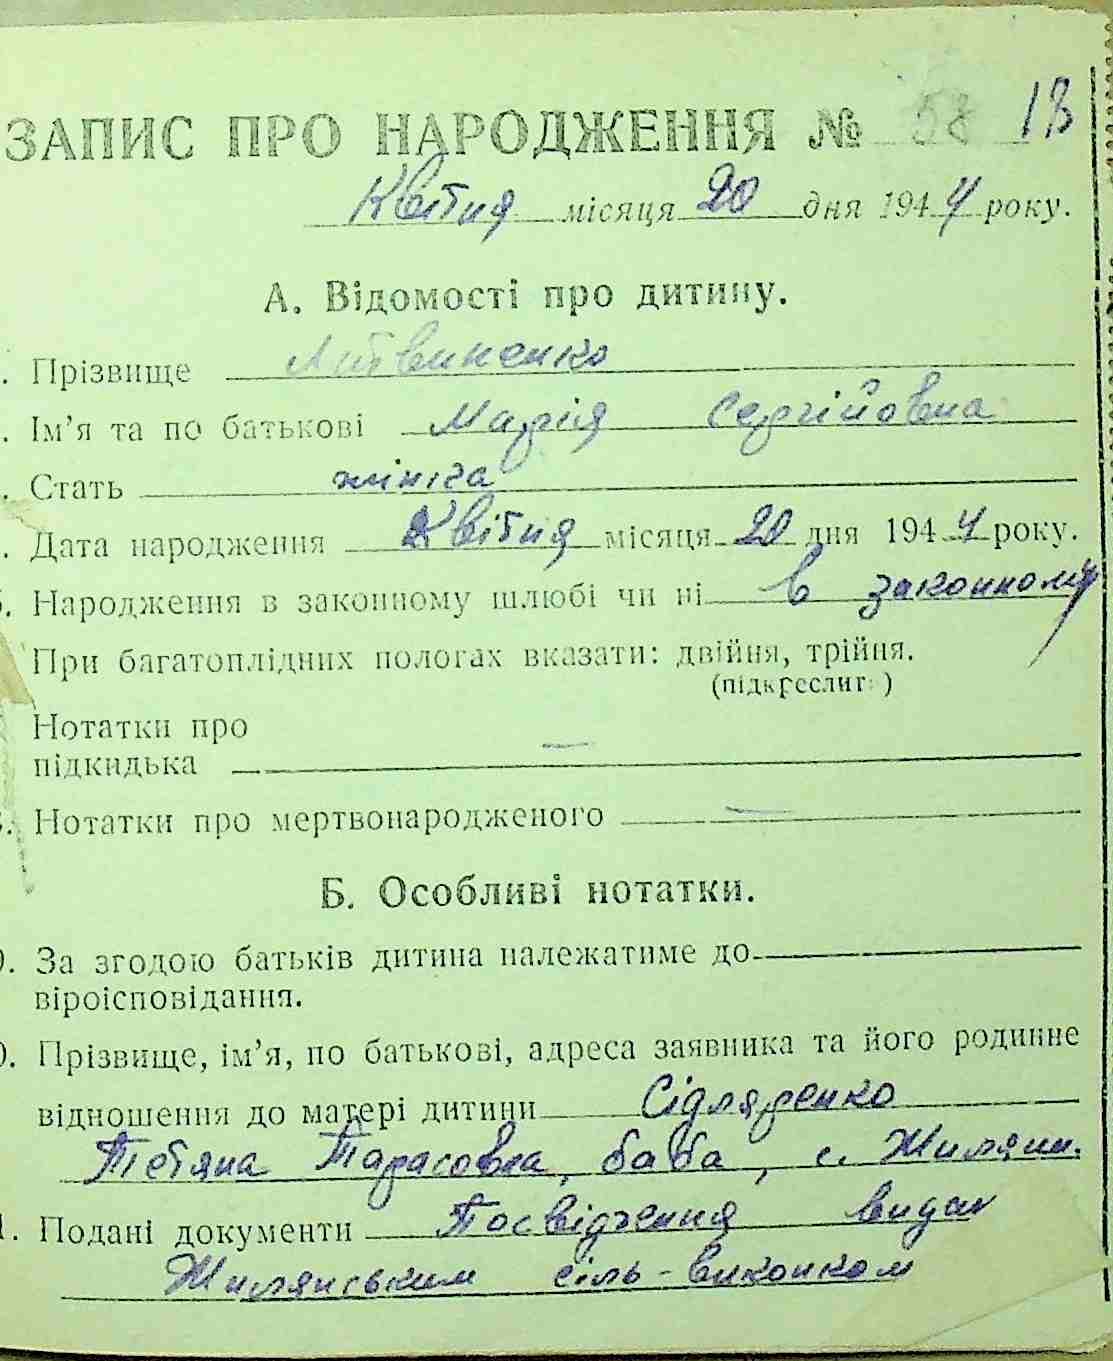 ЗАПИС ПРО НАРОДЖЕННЯ № 58 13
Квітня місяця 20 дня 1944 року.
А. Відомості про дитину.
. Прізвище Литвиненко
. Ім'я та по батькові Марія Сергійовна
. Стать жіноча
. Дата народження Квітня місяця 20 дня 1944 року.
. Народження в законному шлюбі чи ні в законному
При багатоплідних пологах вказати: двійня, трійня.
(підкреслити)
Нотатки про
підкидька —
. Нотатки про мертвонародженого —
Б. Особливі нотатки.
. За згодою батьків дитина належатиме до
віроісповідання.
0. Прізвище, ім'я, по батькові, адреса заявника та його родинне
відношення до матері дитини Сідляренко
Тетяна Тарасовна, баба, с. Жиляни.
1. Подані документи Посвідчення видан
Жилянським сіль-виконком